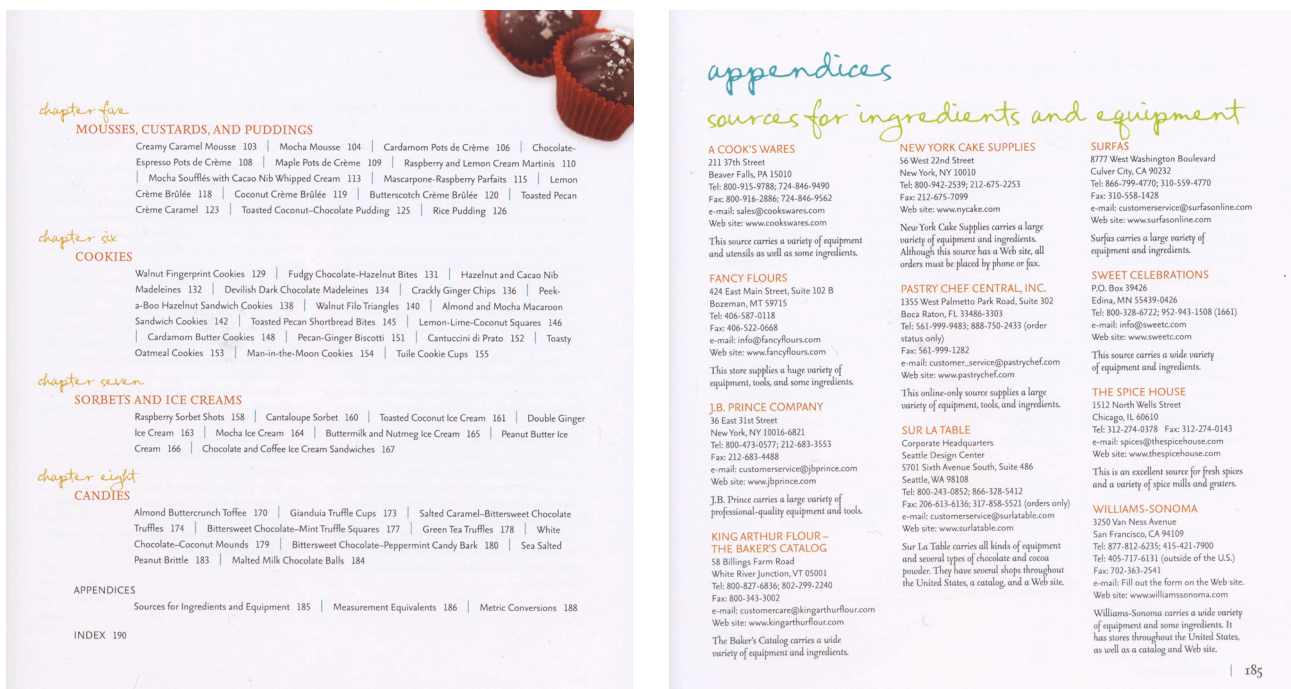 chapter five
MOUSSES, CUSTARDS, AND PUDDINGS
Creamy Caramel Mousse 103 | Mocha Mousse 104 | Cardamom Pots de Crème 106 | Chocolate-
Espresso Pots de Crème 108 | Maple Pots de Crème 109 | Raspberry and Lemon Cream Martinis 110
| Mocha Soufflés with Cacao Nib Whipped Cream 113 | Mascarpone-Raspberry Parfaits 115 | Lemon
Crème Brûlée 118 | Coconut Crème Brûlée 119 | Butterscotch Crème Brûlée 120 | Toasted Pecan
Crème Caramel 123 | Toasted Coconut–Chocolate Pudding 125 | Rice Pudding 126
chapter six
COOKIES
Walnut Fingerprint Cookies 129 | Fudgy Chocolate-Hazelnut Bites 131 | Hazelnut and Cacao Nib
Madeleines 132 | Devilish Dark Chocolate Madeleines 134 | Crackly Ginger Chips 136 | Peek-
a-Boo Hazelnut Sandwich Cookies 138 | Walnut Filo Triangles 140 | Almond and Mocha Macaroon
Sandwich Cookies 142 | Toasted Pecan Shortbread Bites 145 | Lemon-Lime-Coconut Squares 146
| Cardamom Butter Cookies 148 | Pecan-Ginger Biscotti 151 | Cantuccini di Prato 152 | Toasty
Oatmeal Cookies 153 | Man-in-the-Moon Cookies 154 | Tuile Cookie Cups 155
chapter seven
SORBETS AND ICE CREAMS
Raspberry Sorbet Shots 158 | Cantaloupe Sorbet 160 | Toasted Coconut Ice Cream 161 | Double Ginger
Ice Cream 163 | Mocha Ice Cream 164 | Buttermilk and Nutmeg Ice Cream 165 | Peanut Butter Ice
Cream 166 | Chocolate and Coffee Ice Cream Sandwiches 167
chapter eight
CANDIES
Almond Buttercrunch Toffee 170 | Gianduia Truffle Cups 173 | Salted Caramel–Bittersweet Chocolate
Truffles 174 | Bittersweet Chocolate–Mint Truffle Squares 177 | Green Tea Truffles 178 | White
Chocolate–Coconut Mounds 179 | Bittersweet Chocolate–Peppermint Candy Bark 180 | Sea Salted
Peanut Brittle 183 | Malted Milk Chocolate Balls 184
APPENDICES
Sources for Ingredients and Equipment 185 | Measurement Equivalents 186 | Metric Conversions 188
INDEX 190
appendices
sources for ingredients and equipment
A COOK'S WARES
211 37th Street
Beaver Falls, PA 15010
Tel: 800-915-9788; 724-846-9490
Fax: 800-916-2886; 724-846-9562
e-mail: sales@cookswares.com
Web site: www.cookswares.com
This source carries a variety of equipment
and utensils as well as some ingredients.
FANCY FLOURS
424 East Main Street, Suite 102 B
Bozeman, MT 59715
Tel: 406-587-0118
Fax: 406-522-0668
e-mail: info@fancyflours.com
Web site: www.fancyflours.com
This store supplies a huge variety of
equipment, tools, and some ingredients.
J.B. PRINCE COMPANY
36 East 31st Street
New York, NY 10016-6821
Tel: 800-473-0577; 212-683-3553
Fax: 212-683-4488
e-mail: customerservice@jbprince.com
Web site: www.jbprince.com
J.B. Prince carries a large variety of
professional-quality equipment and tools.
KING ARTHUR FLOUR–
THE BAKER'S CATALOG
58 Billings Farm Road
White River Junction, VT 05001
Tel: 800-827-6836; 802-299-2240
Fax: 800-343-3002
e-mail: customercare@kingarthurflour.com
Web site: www.kingarthurflour.com
The Baker's Catalog carries a wide
variety of equipment and ingredients.
NEW YORK CAKE SUPPLIES
56 West 22nd Street
New York, NY 10010
Tel: 800-942-2539; 212-675-2253
Fax: 212-675-7099
Web site: www.nycake.com
New York Cake Supplies carries a large
variety of equipment and ingredients.
Although this source has a Web site, all
orders must be placed by phone or fax.
PASTRY CHEF CENTRAL, INC.
1355 West Palmetto Park Road, Suite 302
Boca Raton, FL 33486-3303
Tel: 561-999-9483; 888-750-2433 (order
status only)
Fax: 561-999-1282
e-mail: customer_service@pastrychef.com
Web site: www.pastrychef.com
This online-only source supplies a large
variety of equipment, tools, and ingredients.
SUR LA TABLE
Corporate Headquarters
Seattle Design Center
5701 Sixth Avenue South, Suite 486
Seattle, WA 98108
Tel: 800-243-0852; 866-328-5412
Fax: 206-613-6136; 317-858-5521 (orders only)
e-mail: customerservice@surlatable.com
Web site: www.surlatable.com
Sur La Table carries all kinds of equipment
and several types of chocolate and cocoa
powder. They have several shops throughout
the United States, a catalog, and a Web site.
SURFAS
8777 West Washington Boulevard
Culver City, CA 90232
Tel: 866-799-4770; 310-559-4770
Fax: 310-558-1428
e-mail: customerservice@surfasonline.com
Web site: www.surfasonline.com
Surfas carries a large variety of
equipment and ingredients.
SWEET CELEBRATIONS
P.O. Box 39426
Edina, MN 55439-0426
Tel: 800-328-6722; 952-943-1508 (1661)
e-mail: info@sweetc.com
Web site: www.sweetc.com
This source carries a wide variety
of equipment and ingredients.
THE SPICE HOUSE
1512 North Wells Street
Chicago, IL 60610
Tel: 312-274-0378 Fax: 312-274-0143
e-mail: spices@thespicehouse.com
Web site: www.thespicehouse.com
This is an excellent source for fresh spices
and a variety of spice mills and graters.
WILLIAMS-SONOMA
3250 Van Ness Avenue
San Francisco, CA 94109
Tel: 877-812-6235; 415-421-7900
Tel: 405-717-6131 (outside of the U.S.)
Fax: 702-363-2541
e-mail: Fill out the form on the Web site.
Web site: www.williamssonoma.com
Williams-Sonoma carries a wide variety
of equipment and some ingredients. It
has stores throughout the United States,
as well as a catalog and Web site.
| 185